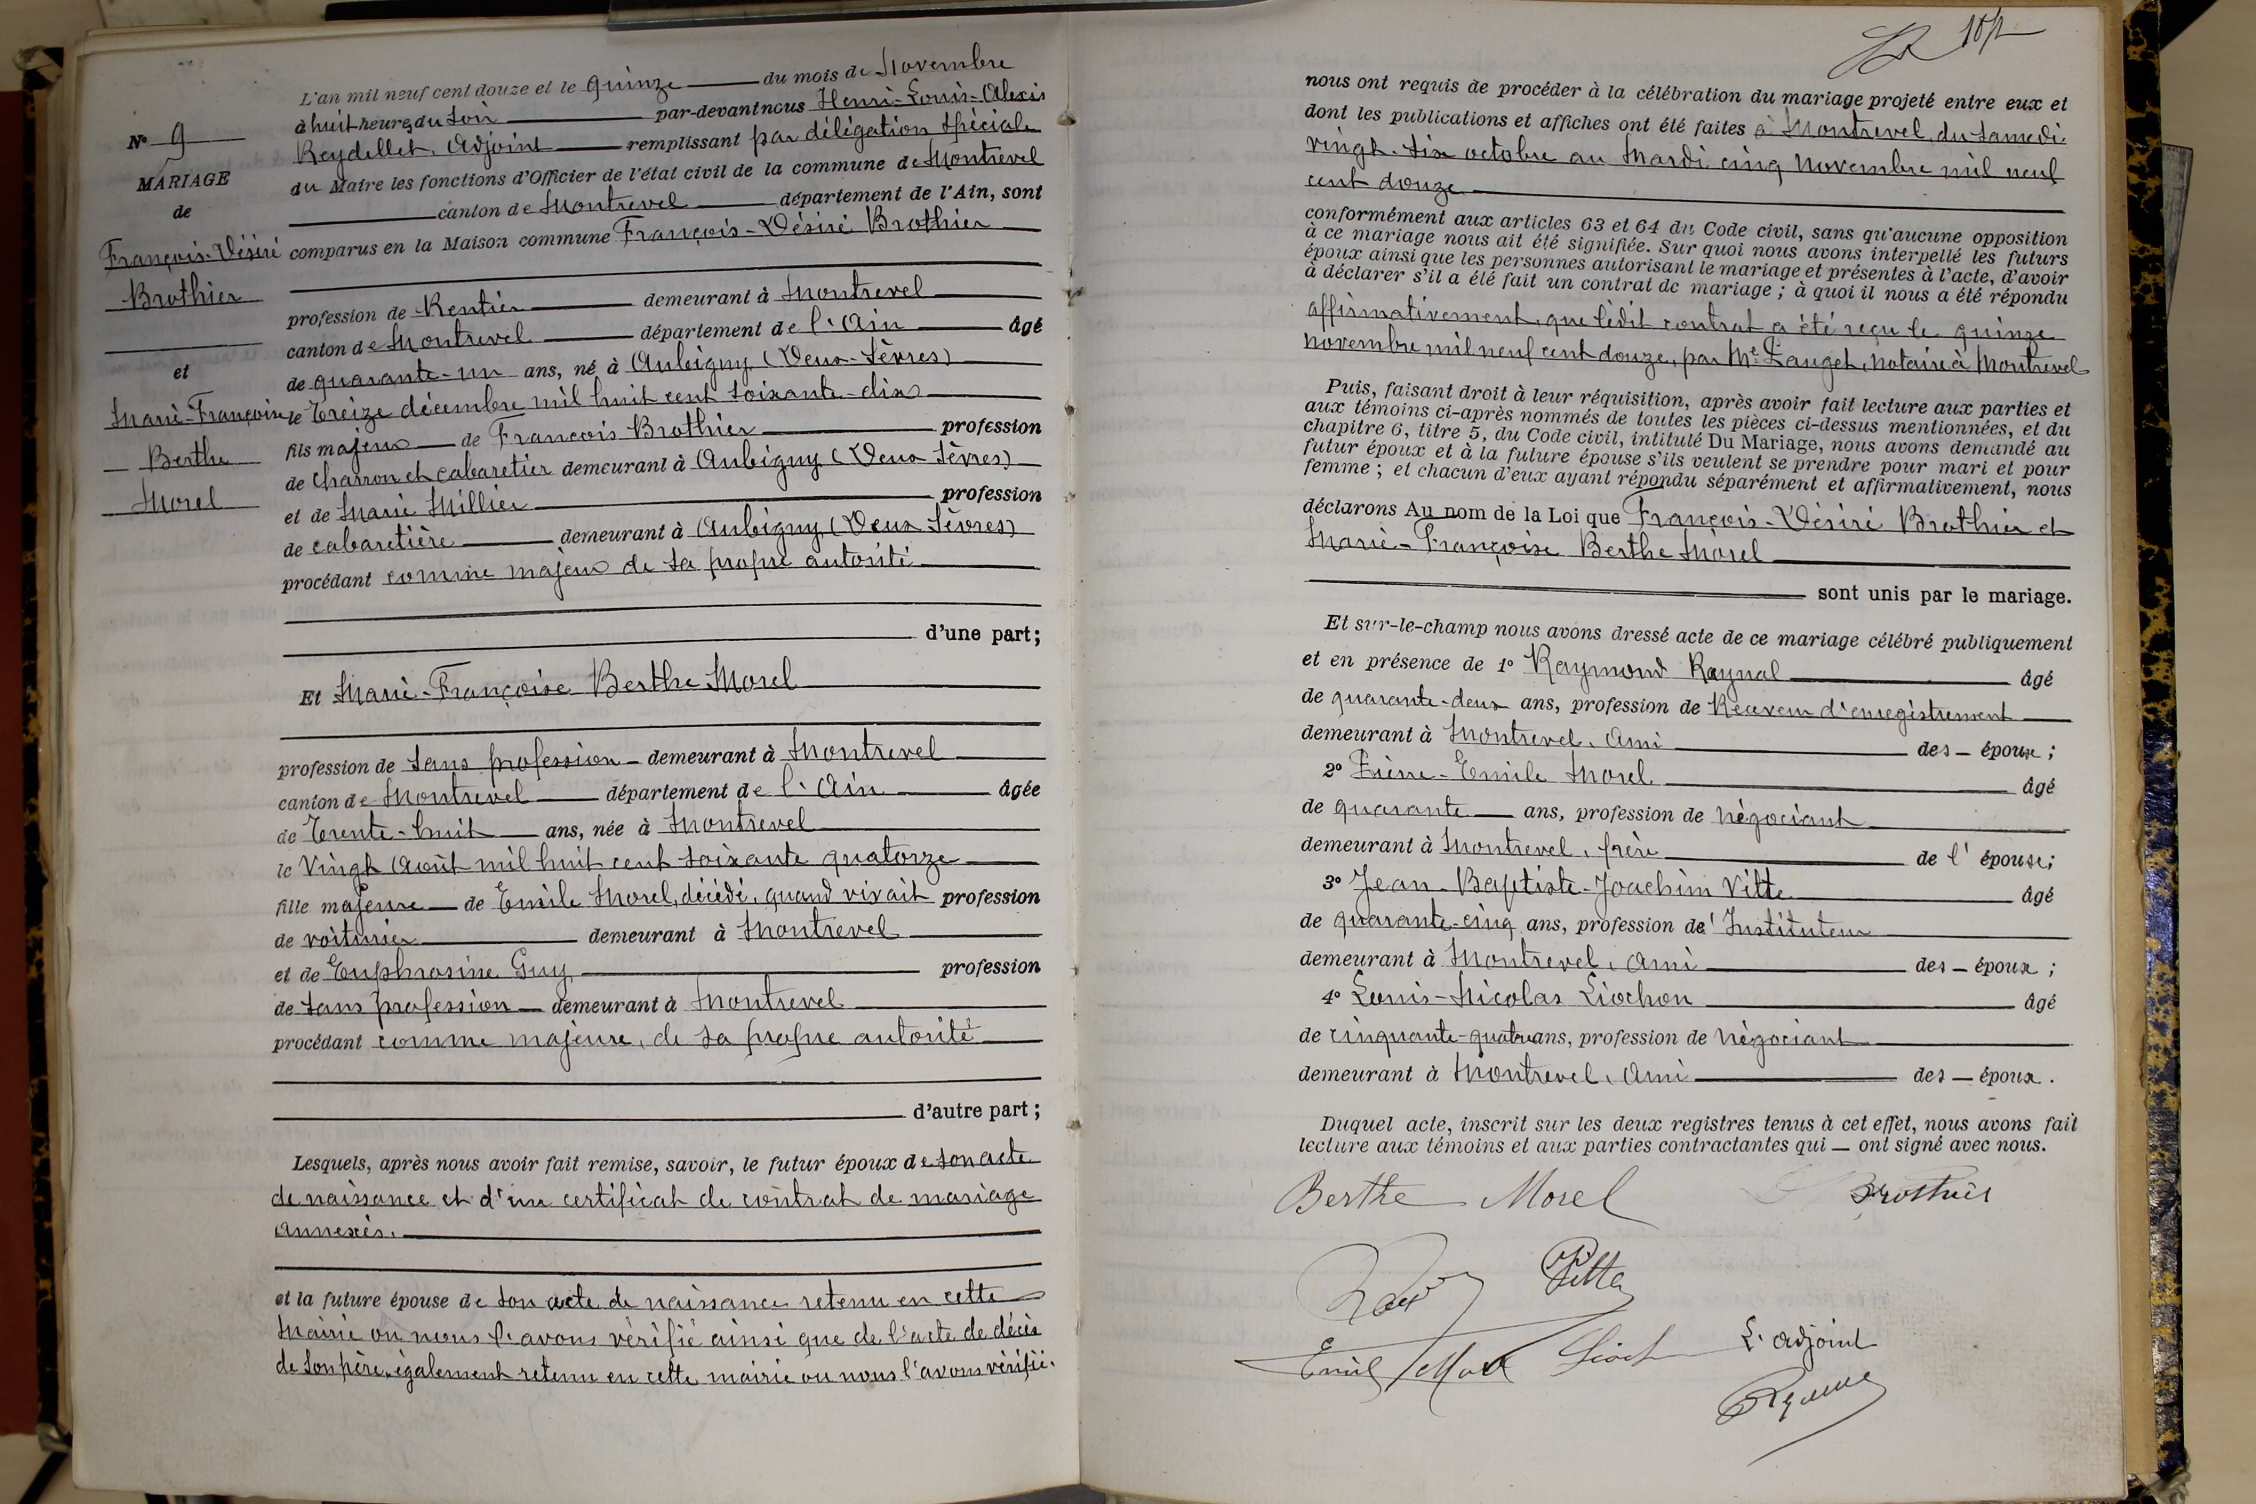 L'an mil neuf cent douze et le quinze du mois de Novembre
à huit heures du soir par-devant nous Henri-Louis-Alexis
Reydellet, Adjoint remplissant par délégation spéciale
du Maire les fonctions d'Officier de l'état civil de la commune de Montrevel
canton de Montrevel département de l'Ain, sont
comparus en la Maison commune François-Désiré Brothier
profession de Rentier demeurant à Montrevel
canton de Montrevel département de l'Ain âgé
de quarante-un ans, né à Aubigny (Deux-Sèvres)
le Treize décembre mil huit cent soixante-dix
fils majeur de François Brothier profession
de Charron et cabaretier demeurant à Aubigny (Deux Sèvres)
et de Marie Millier profession
de cabaretière demeurant à Aubigny (Deux Sèvres)
procédant comme majeur de sa propre autorité
d'une part;
Et Marie-Françoise Berthe Morel
profession de sans profession demeurant à Montrevel
canton de Montrevel département de l'Ain âgée
de Trente-huit ans, née à Montrevel
le Vingt Août mil huit cent soixante quatorze
fille majeure de Emile Morel, décédé, quand vivait profession
de voiturier demeurant à Montrevel
et de Euphrosine Guy profession
de sans profession demeurant à Montrevel
procédant comme majeure, de sa propre autorité
d'autre part;
Lesquels, après nous avoir fait remise, savoir, le futur époux de son acte
de naissance et d'un certificat de contrat de mariage
annexés.
et la future épouse de son acte de naissance retenu en cette
Mairie ou nous l'avons vérifié ainsi que de l'acte de décès
de son père, également retenu en cette mairie ou nous l'avons vérifié.
N° 9
MARIAGE
de
François-Désiré
Brothier
et
Marie-Françoise
Berthe
Morel
nous ont requis de procéder à la célébration du mariage projeté entre eux et
dont les publications et affiches ont été faites à Montrevel, du samedi
vingt-six octobre au Mardi cinq Novembre mil neuf
cent douze
conformément aux articles 63 et 64 du Code civil, sans qu'aucune opposition
à ce mariage nous ait été signifiée. Sur quoi nous avons interpellé les futurs
époux ainsi que les personnes autorisant le mariage et présentes à l'acte, d'avoir
à déclarer s'il a été fait un contrat de mariage; à quoi il nous a été répondu
affirmativement, que ledit contrat a été reçu le quinze
novembre mil neuf cent douze, par Me Lauget, notaire à Montrevel
Puis, faisant droit à leur réquisition, après avoir fait lecture aux parties et
aux témoins ci-après nommés de toutes les pièces ci-dessus mentionnées, et du
chapitre 6, titre 5, du Code civil, intitulé Du Mariage, nous avons demandé au
futur époux et à la future épouse s'ils veulent se prendre pour mari et pour
femme; et chacun d'eux ayant répondu séparément et affirmativement, nous
déclarons Au nom de la Loi que François-Désiré Brothier et
Marie-Françoise Berthe Morel
sont unis par le mariage.
Et sur-le-champ nous avons dressé acte de ce mariage célébré publiquement
et en présence de 1° Raymond Raynal âgé
de quarante-deux ans, profession de Receveur d'enregistrement
demeurant à Montrevel, ami des époux;
2° Pierre-Emile Morel âgé
de quarante ans, profession de Négociant
demeurant à Montrevel, frère de l'épouse;
3° Jean-Baptiste-Joachim Vitte âgé
de quarante-cinq ans, profession de' Instituteur
demeurant à Montrevel, ami des époux;
4° Louis-Nicolas Liochon âgé
de cinquante-quatre ans, profession de Négociant
demeurant à Montrevel, ami des époux.
Duquel acte, inscrit sur les deux registres tenus à cet effet, nous avons fait
lecture aux témoins et aux parties contractantes qui ont signé avec nous.
Berthe Morel Brothier
Vitte
Emile Morel L'adjoint